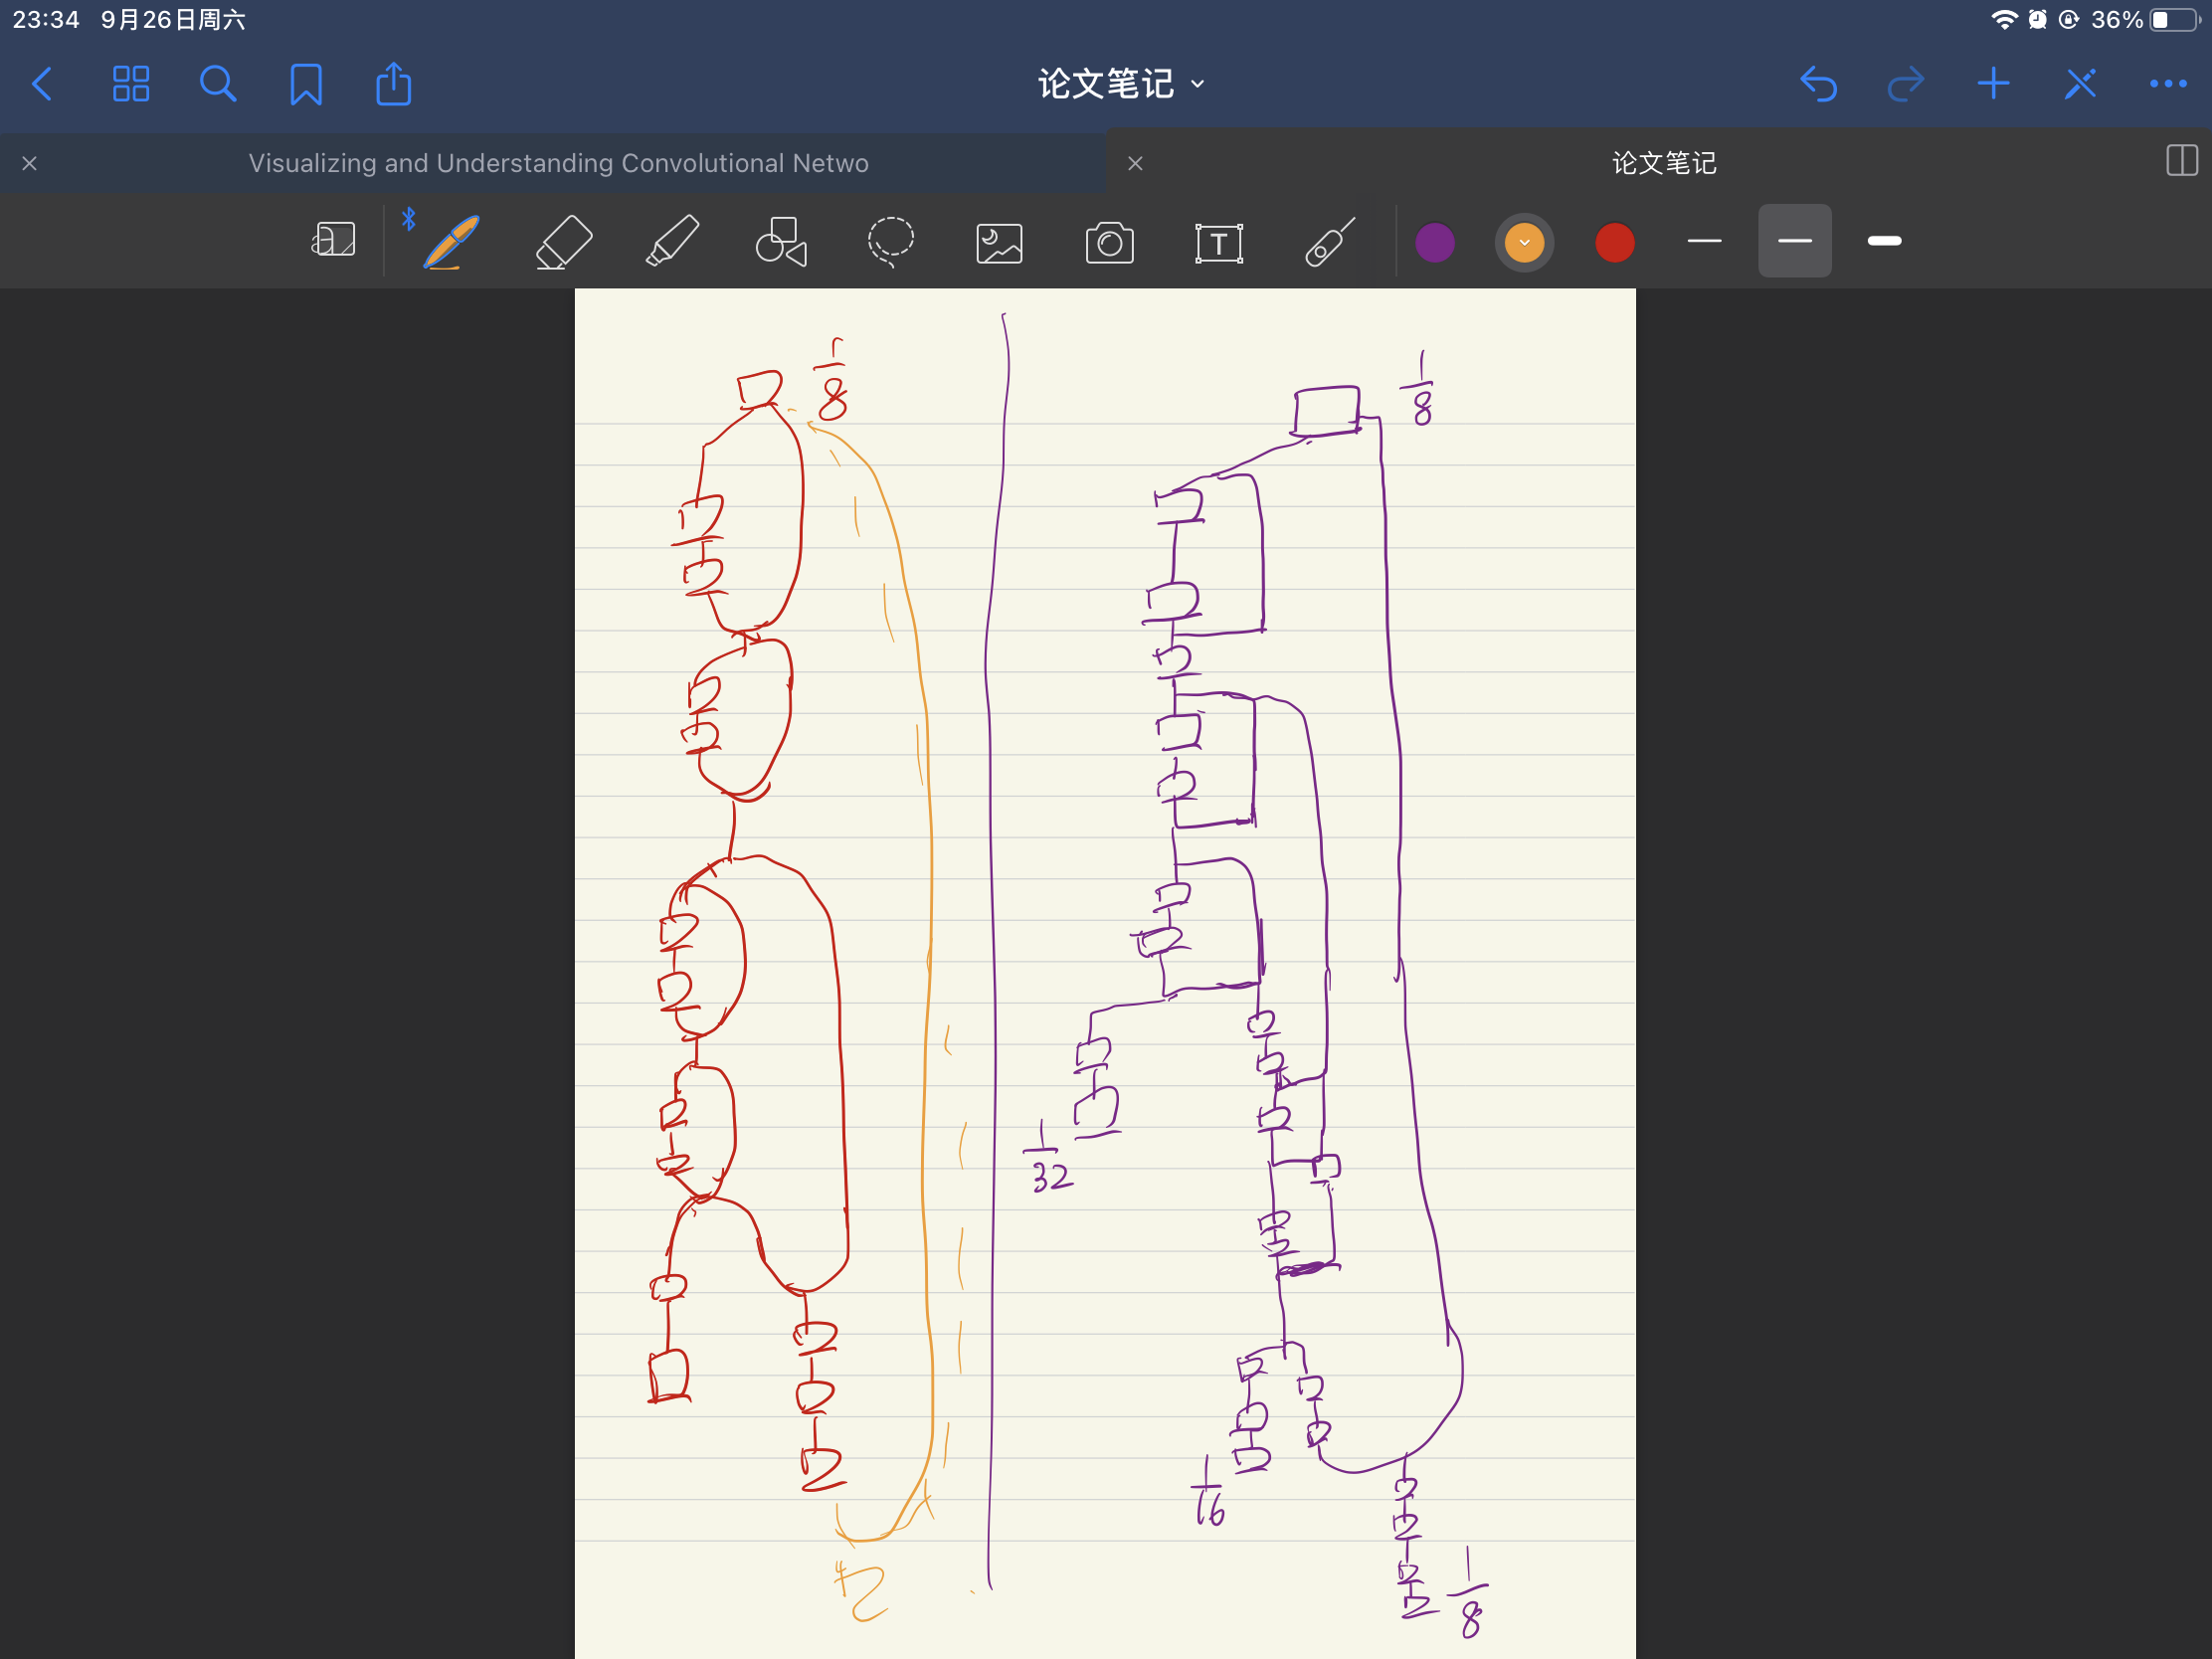 23:34 9月26日周六 36%
论文笔记
Visualizing and Understanding Convolutional Netwo
论文笔记
T
1/8
1/8
1/32
1/16
1/8